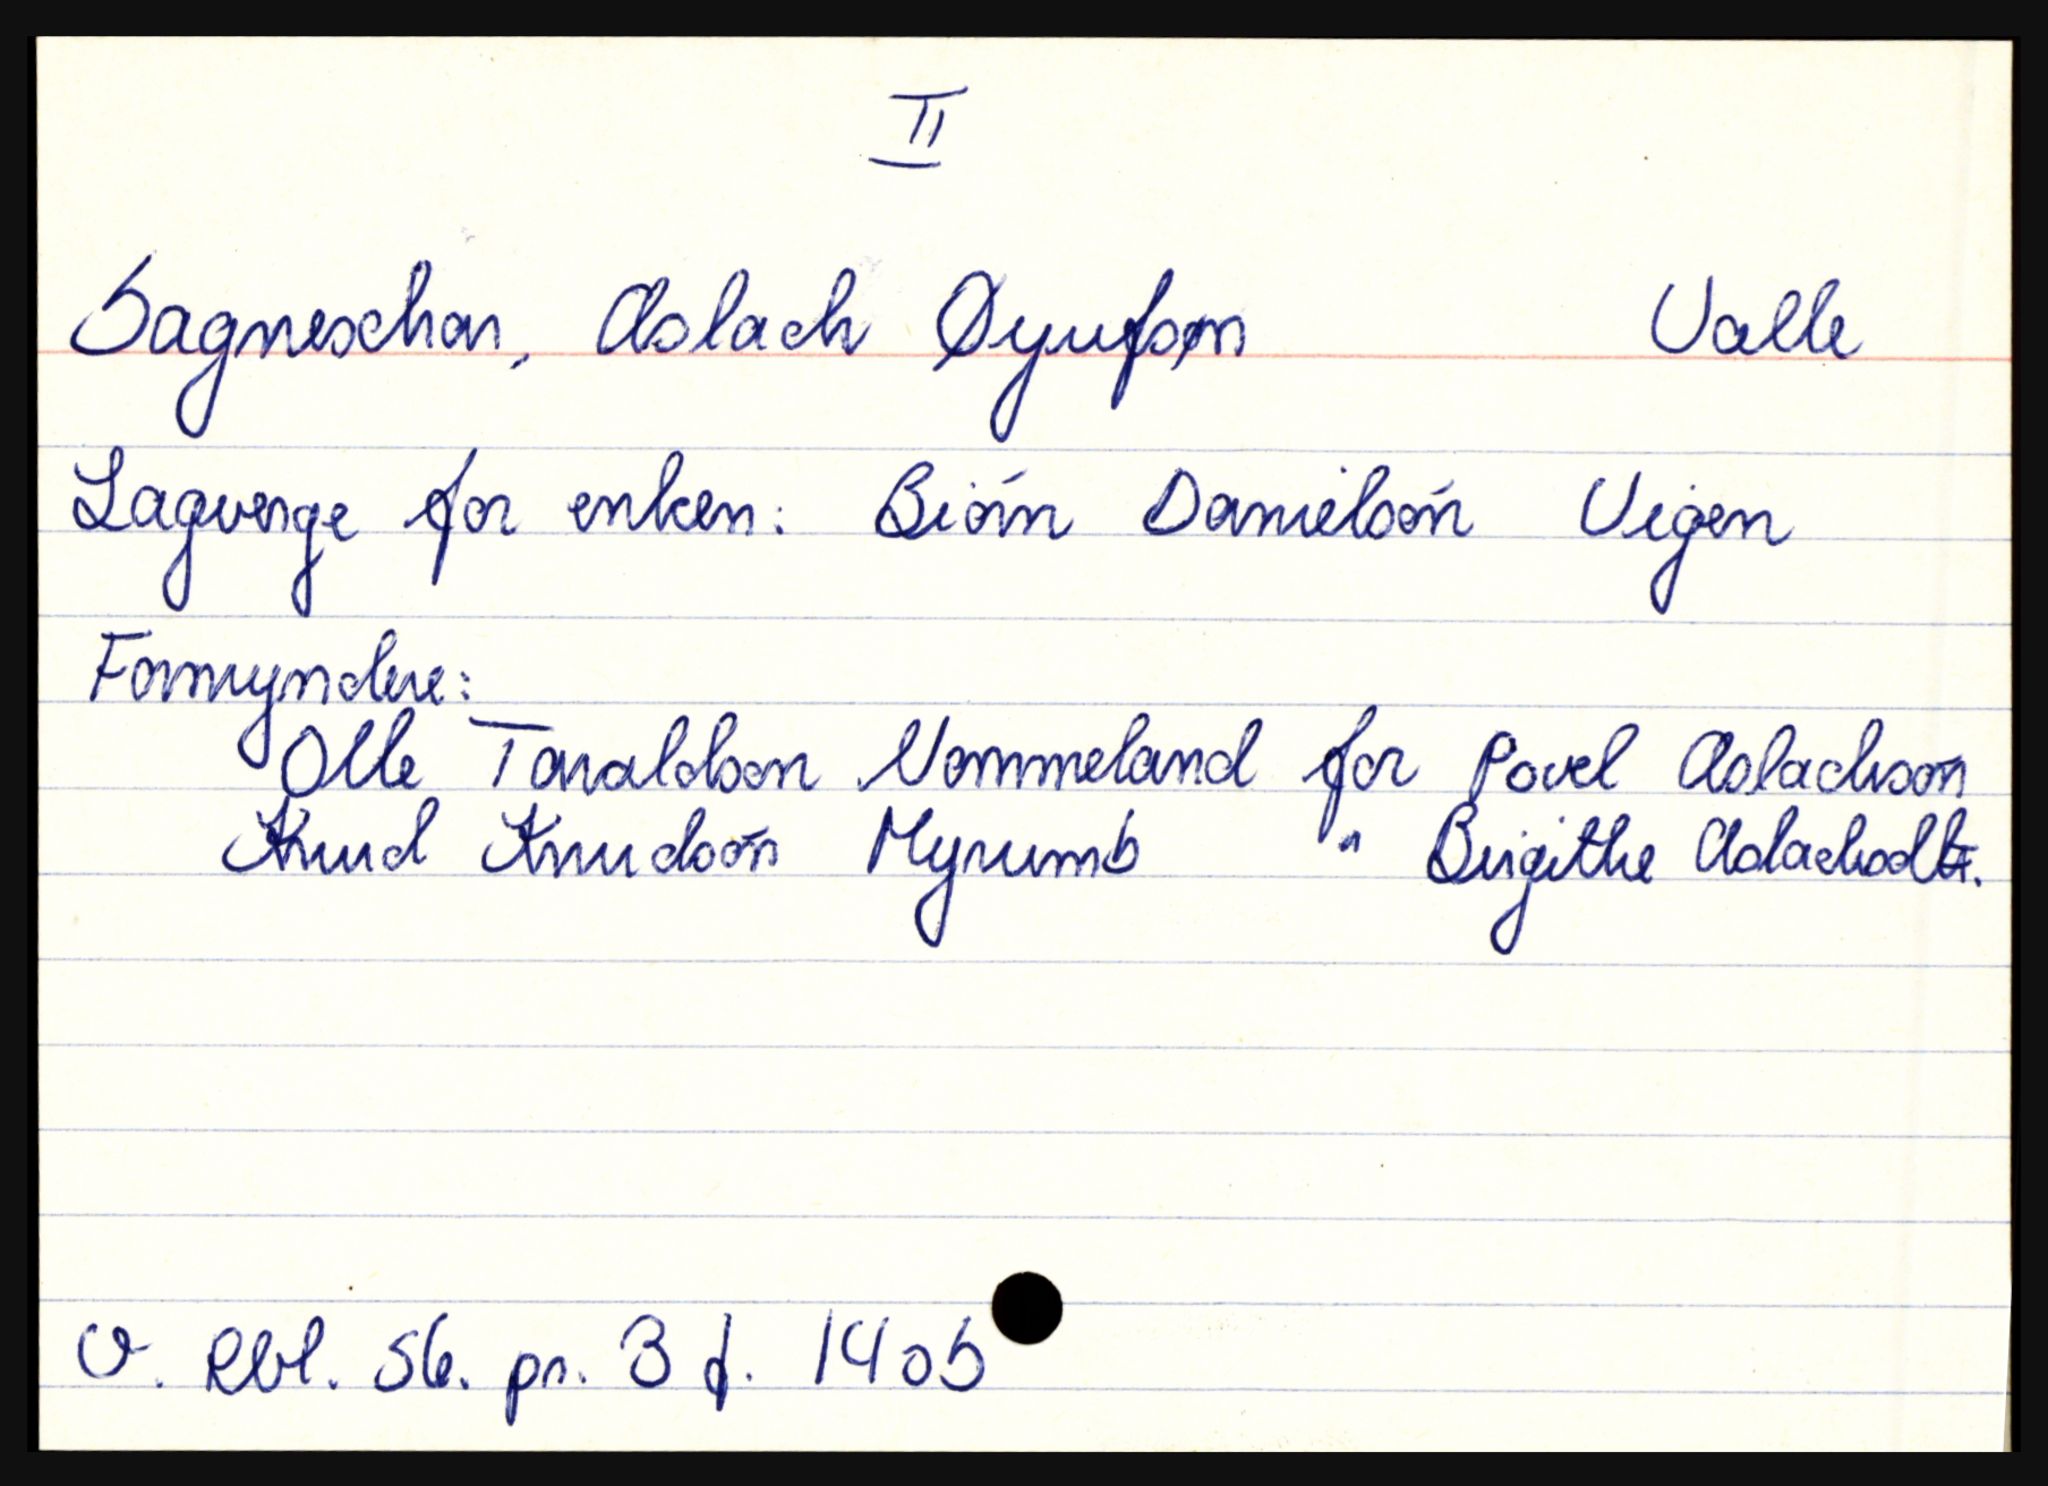 II
Sagneschar, Aslach Øyufsøn Valle
Lagverge for enken: Biórn Danielsón Vigen
Formyndere:
Olle Taraldsøn Nommeland for Povel Aslachsón
Knud Knudsón Myrumb " Birgithe Aslachsdtr.
V. Rbl. Sk. pr. 3 f. 140b